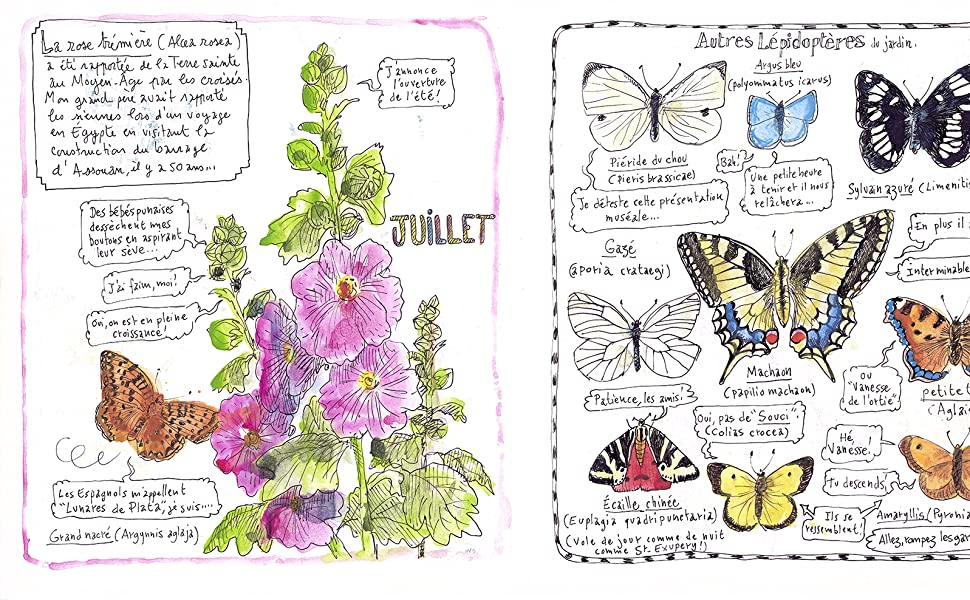 La rose trémière (Alcea rosea)
a été rapportée de la Terre sainte
au Moyen-Âge par les croisés.
Mon grand père avait rapporté
les siennes lors d'un voyage
en Egypte en visitant la
construction du barrage
d'Assouan, il y a 50 ans...
J'annonce
l'ouverture
de l'été!
JUILLET
Des bébés punaises
dessèchent mes
boutons en aspirant
leur sève...
J'ai faim, moi!
Oui, on est en pleine
croissance!
Les Espagnols m'appellent
"Lunares de Plata", je suis...
Grand nacré (Argynnis aglaja)
Autres Lépidoptères du jardin.
Argus bleu
(polyommatus icarus)
Piéride du chou
(Pieris brassicae)
Bah!
Une petite heure
à tenir et il nous
relâchera...
Je déteste cette présentation
muséale...
Sylvain azuré (Limenitis
En plus il
Interminable
Gazé
(aporia crataegi)
Machaon
(papilio machaon)
ou
"Vanesse
de l'ortie"
petite t
(Aglai
Patience, les amis!
Oui, pas de "Souci"
(Colias crocea)
Hé,
Vanesse!
Tu descends,
Écaille chinée
(Euplagia quadripunctaria)
(Vole de jour comme de nuit
comme St-Exupery!)
Ils se
ressemblent!
Amaryllis (Pyronia
Allez, rompez les gar